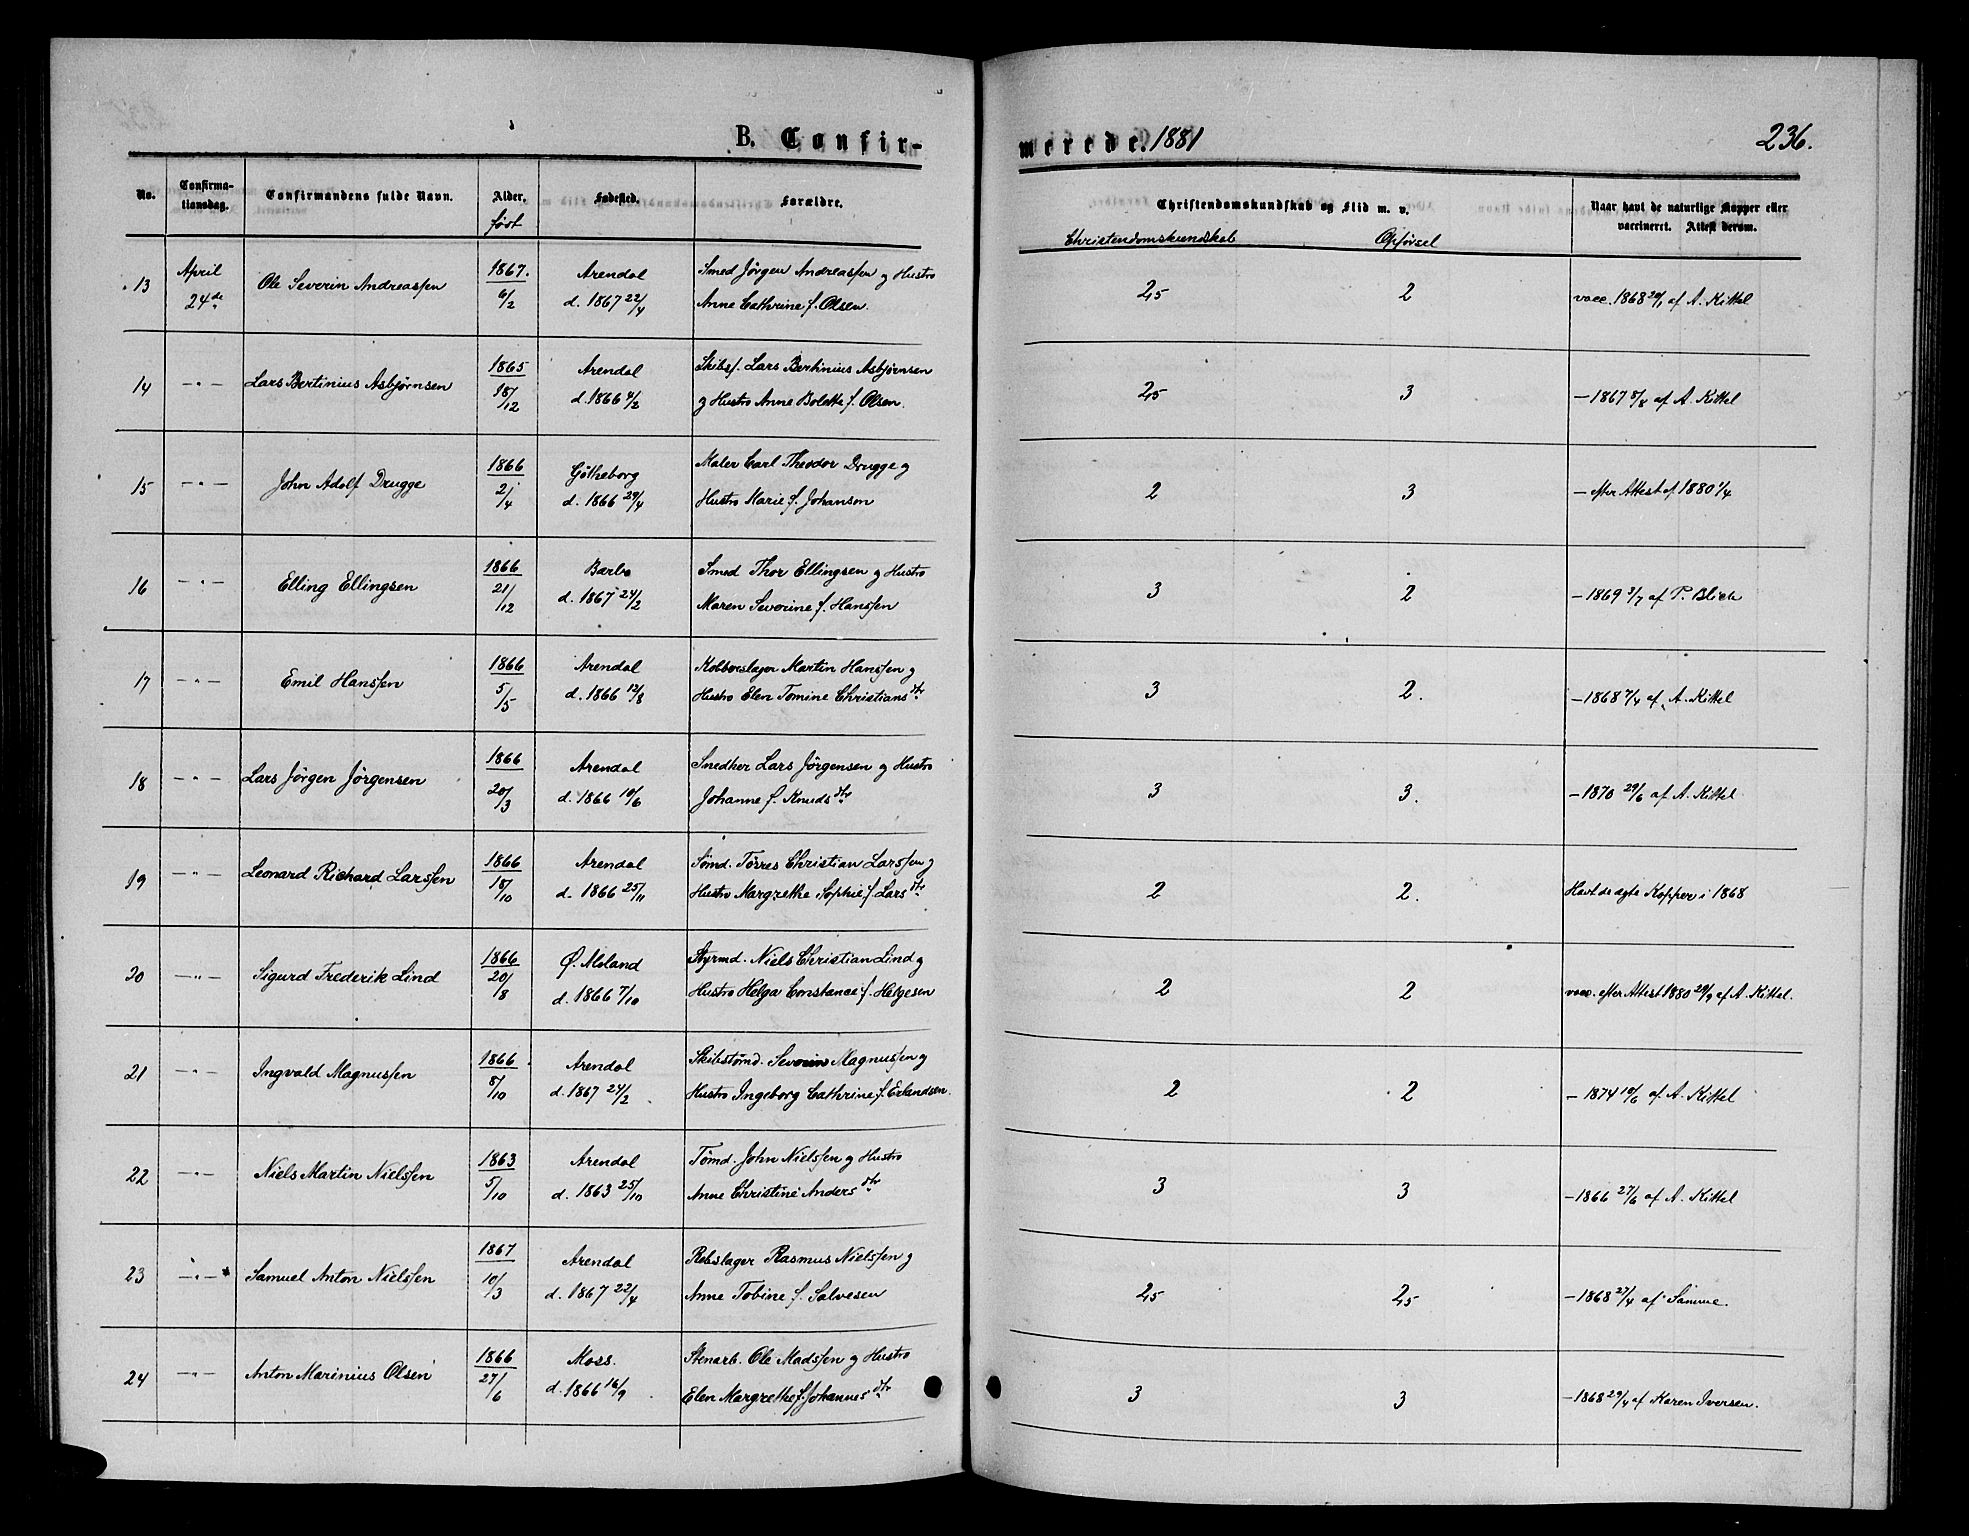 B. Confir-
merede. 1881
236.
No.
Confirma-
tionsdag.
Confirmandens fulde Navn.
Alder.
født
Fødested.
Forældre.
Christendomskundskab og Flid m. v.
Christendomskundskab
Opførsel
Naar havt de naturlige Kopper eller
vaccineret. Attest derom.
13 April 24de Ole Severin Andreassen 1867. 6/2 Arendal d. 1867 22/4 Smed Jørgen Andreassen og Hustro
Anne Cathrine f. Olsen. 2,5 2 vacc. 1868 20/1 af A. Kittel
14 —"— Lars Bertinius Asbjørnsen 1865 18/12 Arendal d. 1866 4/2 Skibsf. Lars Bertinius Asbjørnsen
og Hustro Anne Bolette f. Olsen. 2,5 3 — 1867 8/8 af A. Kittel
15 —"— John Adolf Drugge 1866 2/4 Gøtheborg d. 1866 29/4 Maler Carl Theodor Drugge og
Hustro Marie f. Johanson 2 3 — efter Attest af 1880 1/4
16 —"— Elling Ellingsen 1866 21/12 Barbo d. 1867 24/2 Smed Thor Ellingsen og Hustro
Maren Severine f. Hanssen 3 2 — 1869 3/7 af P. Blich
17 —"— Emil Hanssen 1866 5/5 Arendal d. 1866 12/8 Kobberslager Martin Hanssen og
Hustro Elen Tomine Christiansdtr 3 2. — 1868 7/4 af A. Kittel
18 —"— Lars Jørgen Jørgensen 1866 20/3 Arendal d. 1866 10/6 Snedker Lars Jørgensen og Hustro
Johanne f. Knudsdtr 3 3. — 1870 29/6 af A. Kittel
19 —"— Leonard Richard Larssen 1866 18/10 Arendal d. 1866 25/11 Tømd. Tørres Christian Larssen og
Hustro Margrethe Sophie f. Larsdtr 2 2. Havt de ægte Kopper i 1868
20 —"— Sigurd Frederik Lind 1866 20/8 Ø. Moland d. 1866 7/10 Styrmd. Niels Christian Lind og
Hustro Helga Constance f. Helgesen 2 2 vacc. efter Attest 1880 29/9 af A. Kittel.
21 —"— Ingvald Magnussen 1866 8/10 Arendal d. 1867 24/2 Skibstømd. Severin Magnussen og
Hustro Ingeborg Cathrine f. Erlandsen. 2 2 — 1874 10/6 af A. Kittel
22 —"— Niels Martin Nielssen 1863 5/10 Arendal d. 1863 25/10 Tømd. John Nielssen og Hustro
Anne Christine Andersdtr 3 3 — 1866 27/6 af A. Kittel
23 —"— Samuel Anton Nielssen 1867 10/3 Arendal d. 1867 22/4 Rebslager Rasmus Nielssen og
Anne Tobine f. Salvesen 2,5 2,5 — 1868 27/4 af Samme.
24 —"— Anton Marinius Olsen 1866 27/6 Moss. d. 1866 16/9 Stenarb. Ole Madssen og Hustro
Elen Margrethe f. Johannesdtr 3 3 — 1868 29/4 af Karen Iversen.